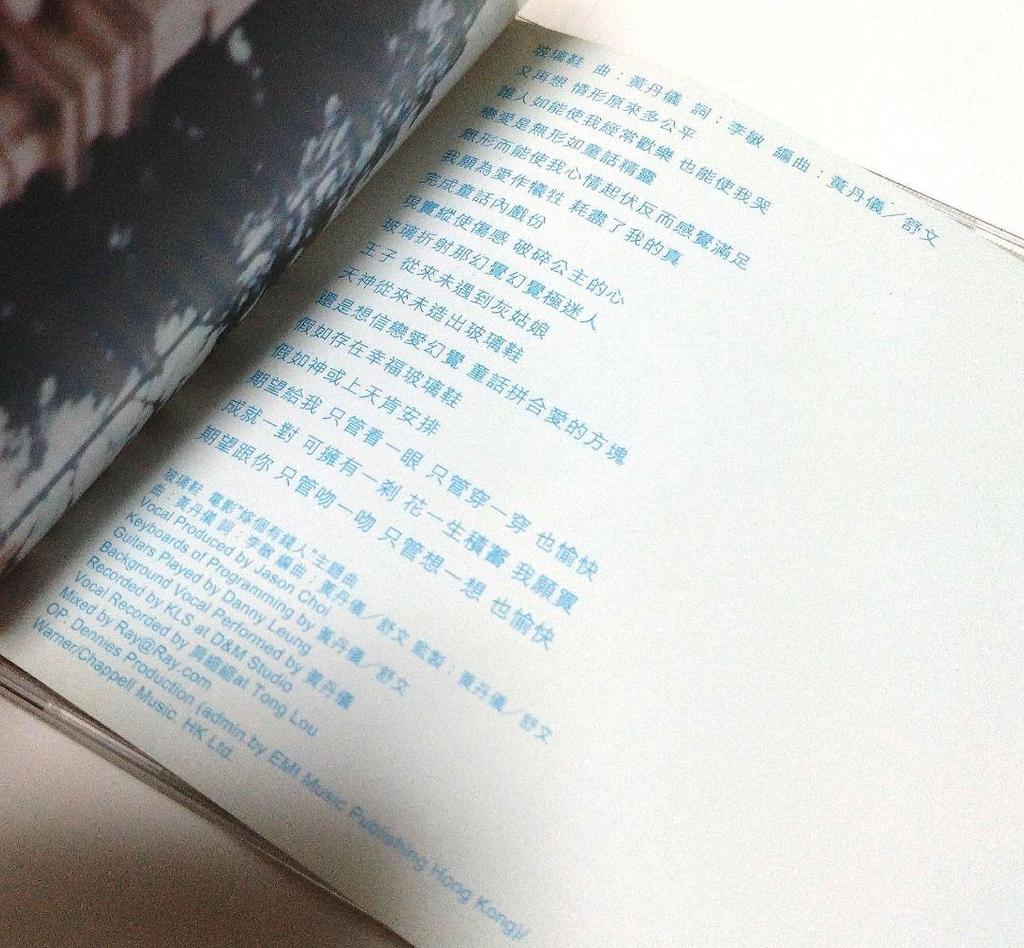 玻璃鞋 曲：黃丹儀 詞：李敏 編曲：黃丹儀／舒文
又再想 情形原來多公平
誰人如能使我經常歡樂 也能使我哭
戀愛是無形如童話精靈
無形而能使我心情起伏反而感覺滿足
我願為愛作犧牲 耗盡了我的真
完成童話內戲份
現實縱使傷感 破碎公主的心
玻璃折射那幻覺幻覺極迷人
王子 從來未遇到灰姑娘
天神從來未造出玻璃鞋
還是想信戀愛幻覺 童話拼合愛的方塊
假如存在幸福玻璃鞋
假如神或上天肯安排
期望給我 只管看一眼 只管穿一穿 也愉快
成就一對 可擁有一刹 花一生積蓄 我願買
期望跟你 只管吻一吻 只管想一想 也愉快
玻璃鞋 電影"嫁個有錢人"主題曲
曲：黃丹儀 詞：李敏 編曲：黃丹儀／舒文 監製：黃丹儀／舒文
Vocal Produced by Jason Choi
Keyboards of Programming by 黃丹儀／舒文
Guitars Played by Danny Leung
Background Vocal Performed by 黃丹儀
Recorded by KLS at D&M Studio
Vocal Recorded by at Tong Lou
Mixed by Ray@Ray.com
OP: Dennies Production (admin.by EMI Music Publishing Hong Kong)/
Warner/Chappell Music. HK Ltd.